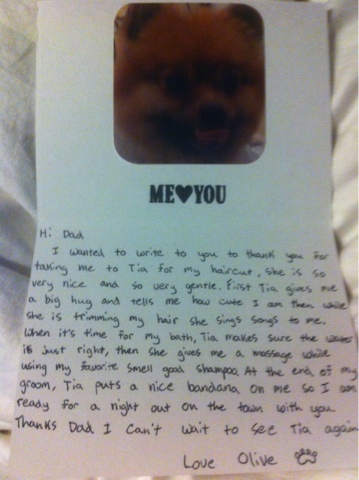 ME♥YOU
Hi Dad
I wanted to write to you to thank you for
taking me to Tia for my haircut, she is so
very nice and so very gentle. First Tia gives me
a big hug and tells me how cute I am then while
she is trimming my hair she sings songs to me.
When it's time for my bath, Tia makes sure the water
is just right, then she gives me a massage while
using my favorite smell good shampoo. At the end of my
groom, Tia puts a nice bandana on me so I am
ready for a night out on the town with you
Thanks Dad I can't wait to see Tia again
Love Olive